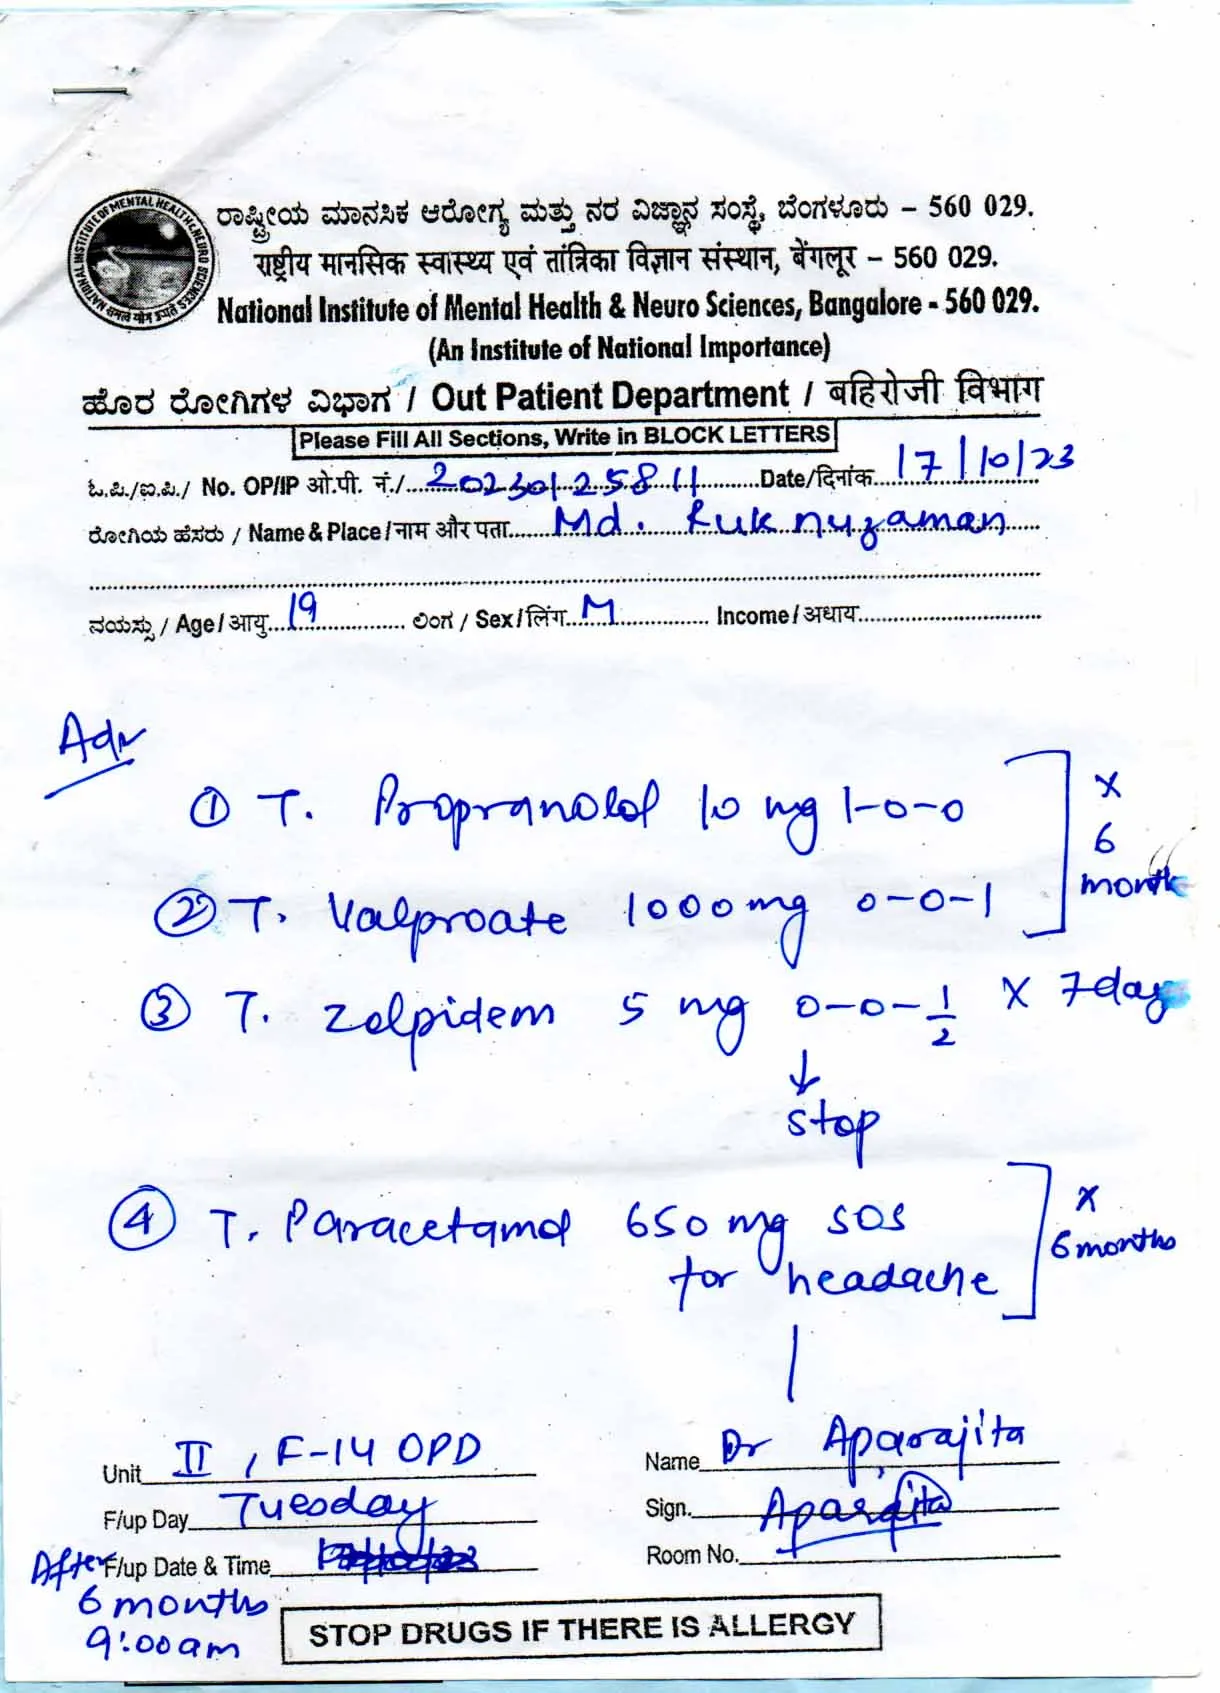 ರಾಷ್ಟ್ರೀಯ ಮಾನಸಿಕ ಆರೋಗ್ಯ ಮತ್ತು ನರ ವಿಜ್ಞಾನ ಸಂಸ್ಥೆ, ಬೆಂಗಳೂರು – 560 029.
राष्ट्रीय मानसिक स्वास्थ्य एवं तांत्रिका विज्ञान संस्थान, बेंगलूर – 560 029.
National Institute of Mental Health & Neuro Sciences, Bangalore - 560 029.
(An Institute of National Importance)
ಹೊರ ರೋಗಿಗಳ ವಿಭಾಗ / Out Patient Department / बहिरोजी विभाग
Please Fill All Sections, Write in BLOCK LETTERS
ಓ.ಪಿ./ಐ.ಪಿ./ No. OP/IP ओ.पी. नं./ 20230125811 Date/दिनांक 17/10/23
ರೋಗಿಯ ಹೆಸರು / Name & Place / नाम और पता Md. Ruknuzaman
ವಯಸ್ಸು / Age / आयु 19 ಲಿಂಗ / Sex / लिंग M Income / अधाय
Adv
① T. Propranolol 10 mg 1-0-0 ] x 6 month
② T. Valproate 1000mg 0-0-1
③ T. Zolpidem 5 mg 0-0-1/2 x 7day
↓
stop
④ T. Paracetamol 650 mg SOS ] x 6 months
for headache
Unit II, F-14 OPD Name Dr Aparajita
F/up Day Tuesday Sign. Aparajita
After F/up Date & Time Room No.
6 months
9:00am
STOP DRUGS IF THERE IS ALLERGY